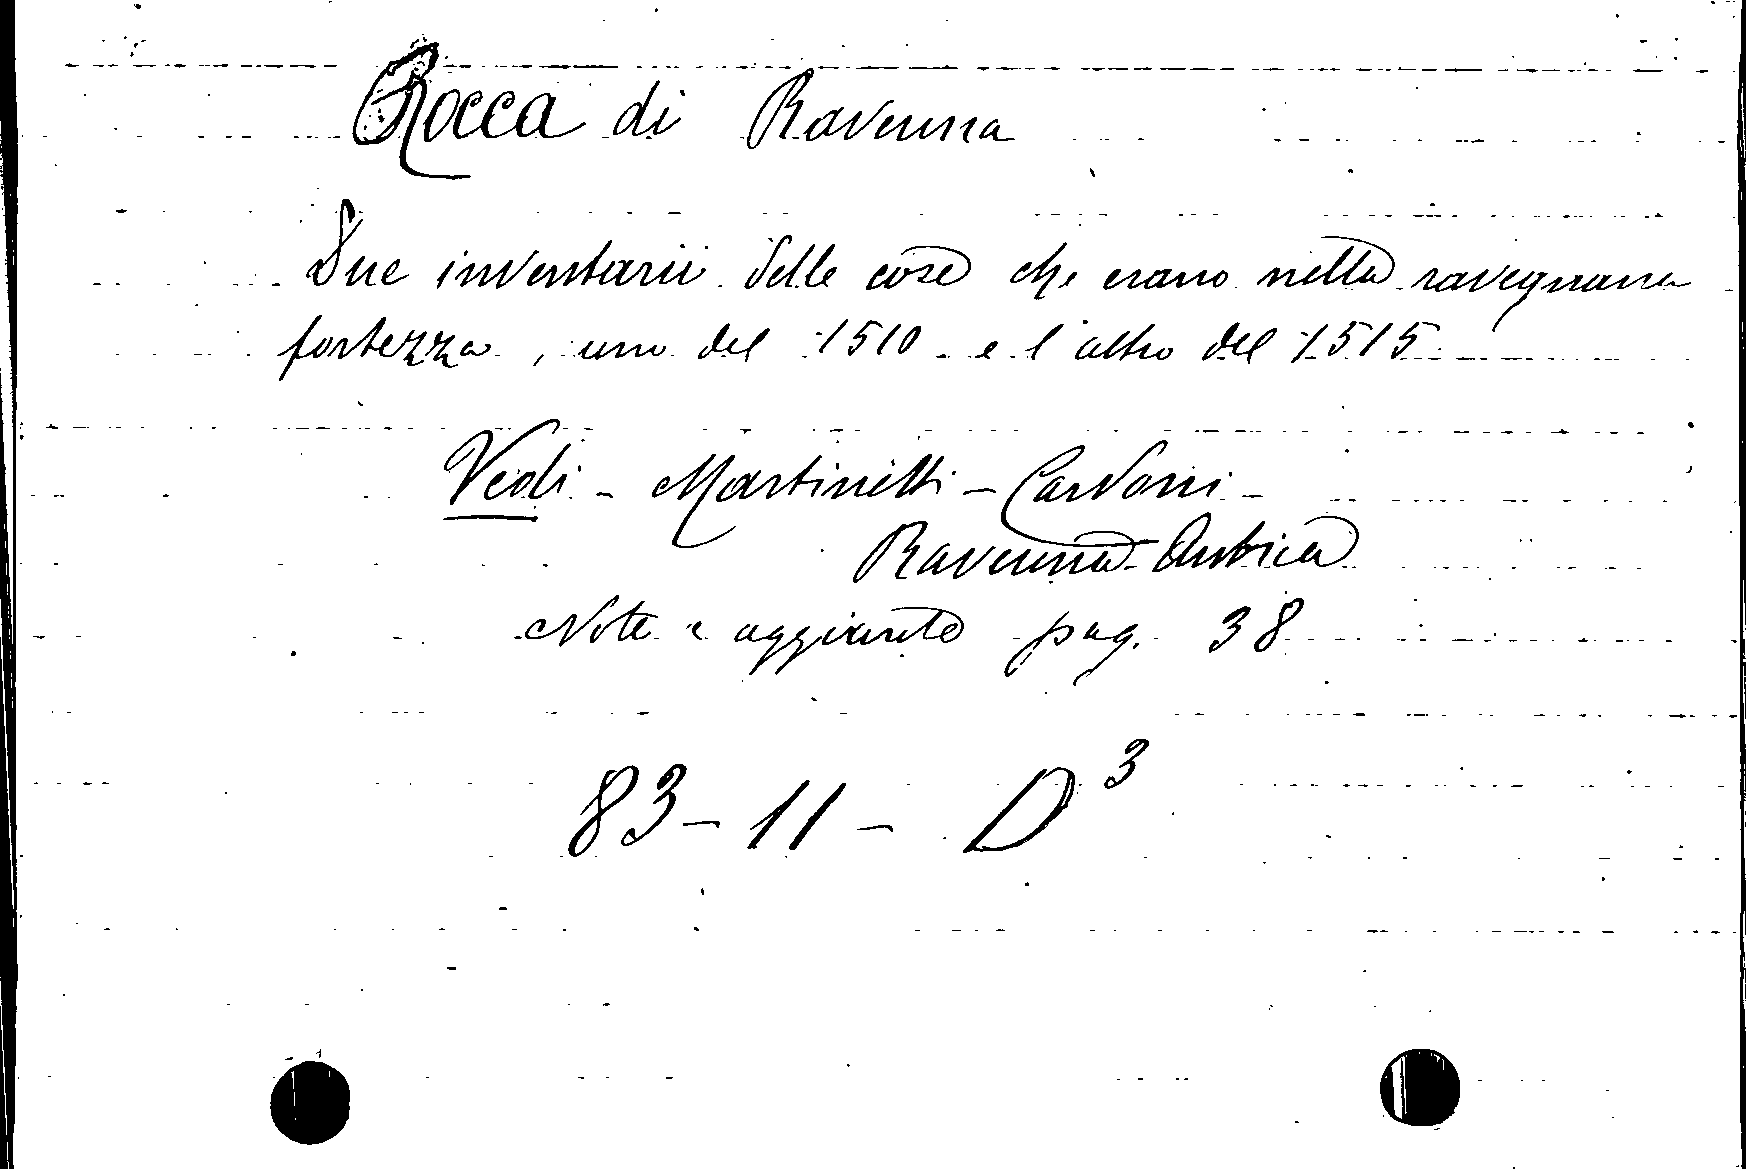 Rocca di Ravenna
Due inventarii delle cose che erano nella ravegnana
fortezza, uno del 1510 e l'altro del 1515
Vedi - Martinetti - Cardoni -
Ravenna Antica
Note e aggiunte pag. 38
83 - 11 - D³